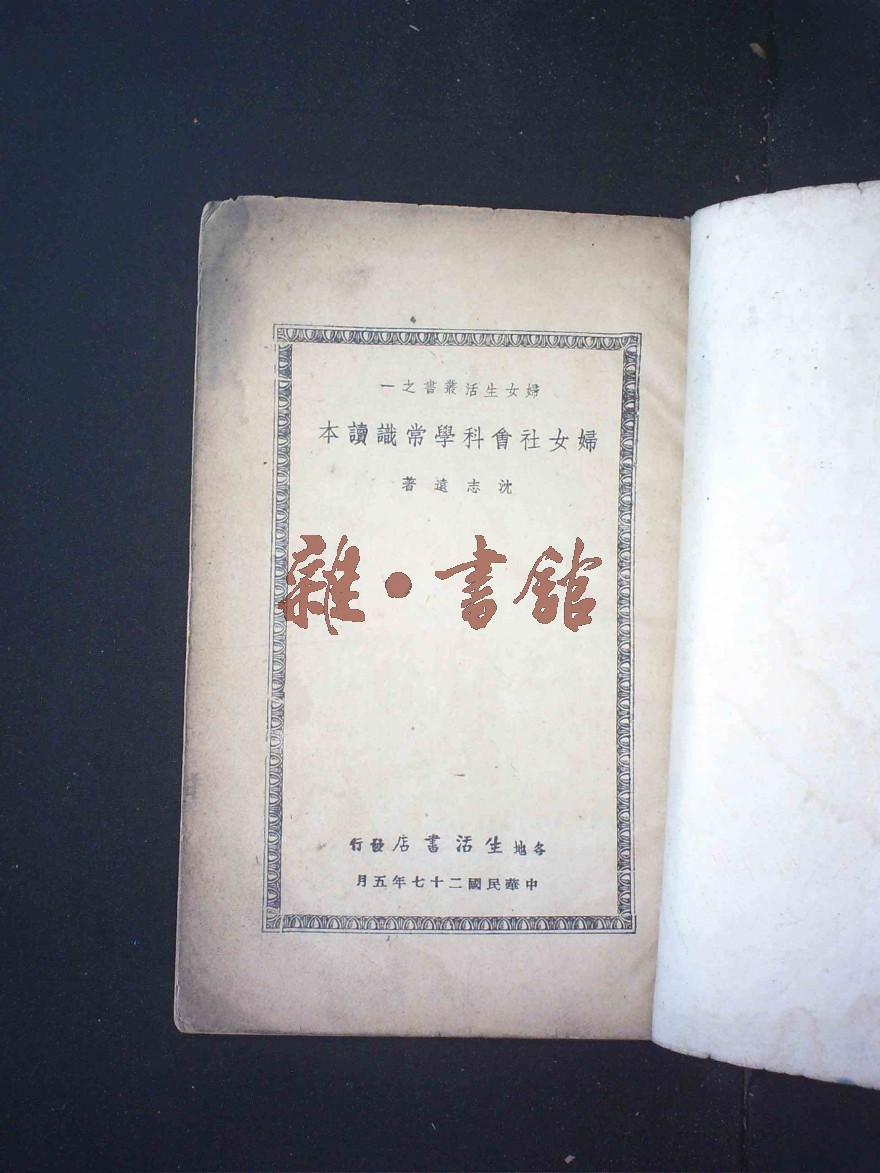 婦女生活叢書之一
婦女社會科學常識讀本
沈志遠著
雜·書館
各地生活書店發行
中華民國二十七年五月